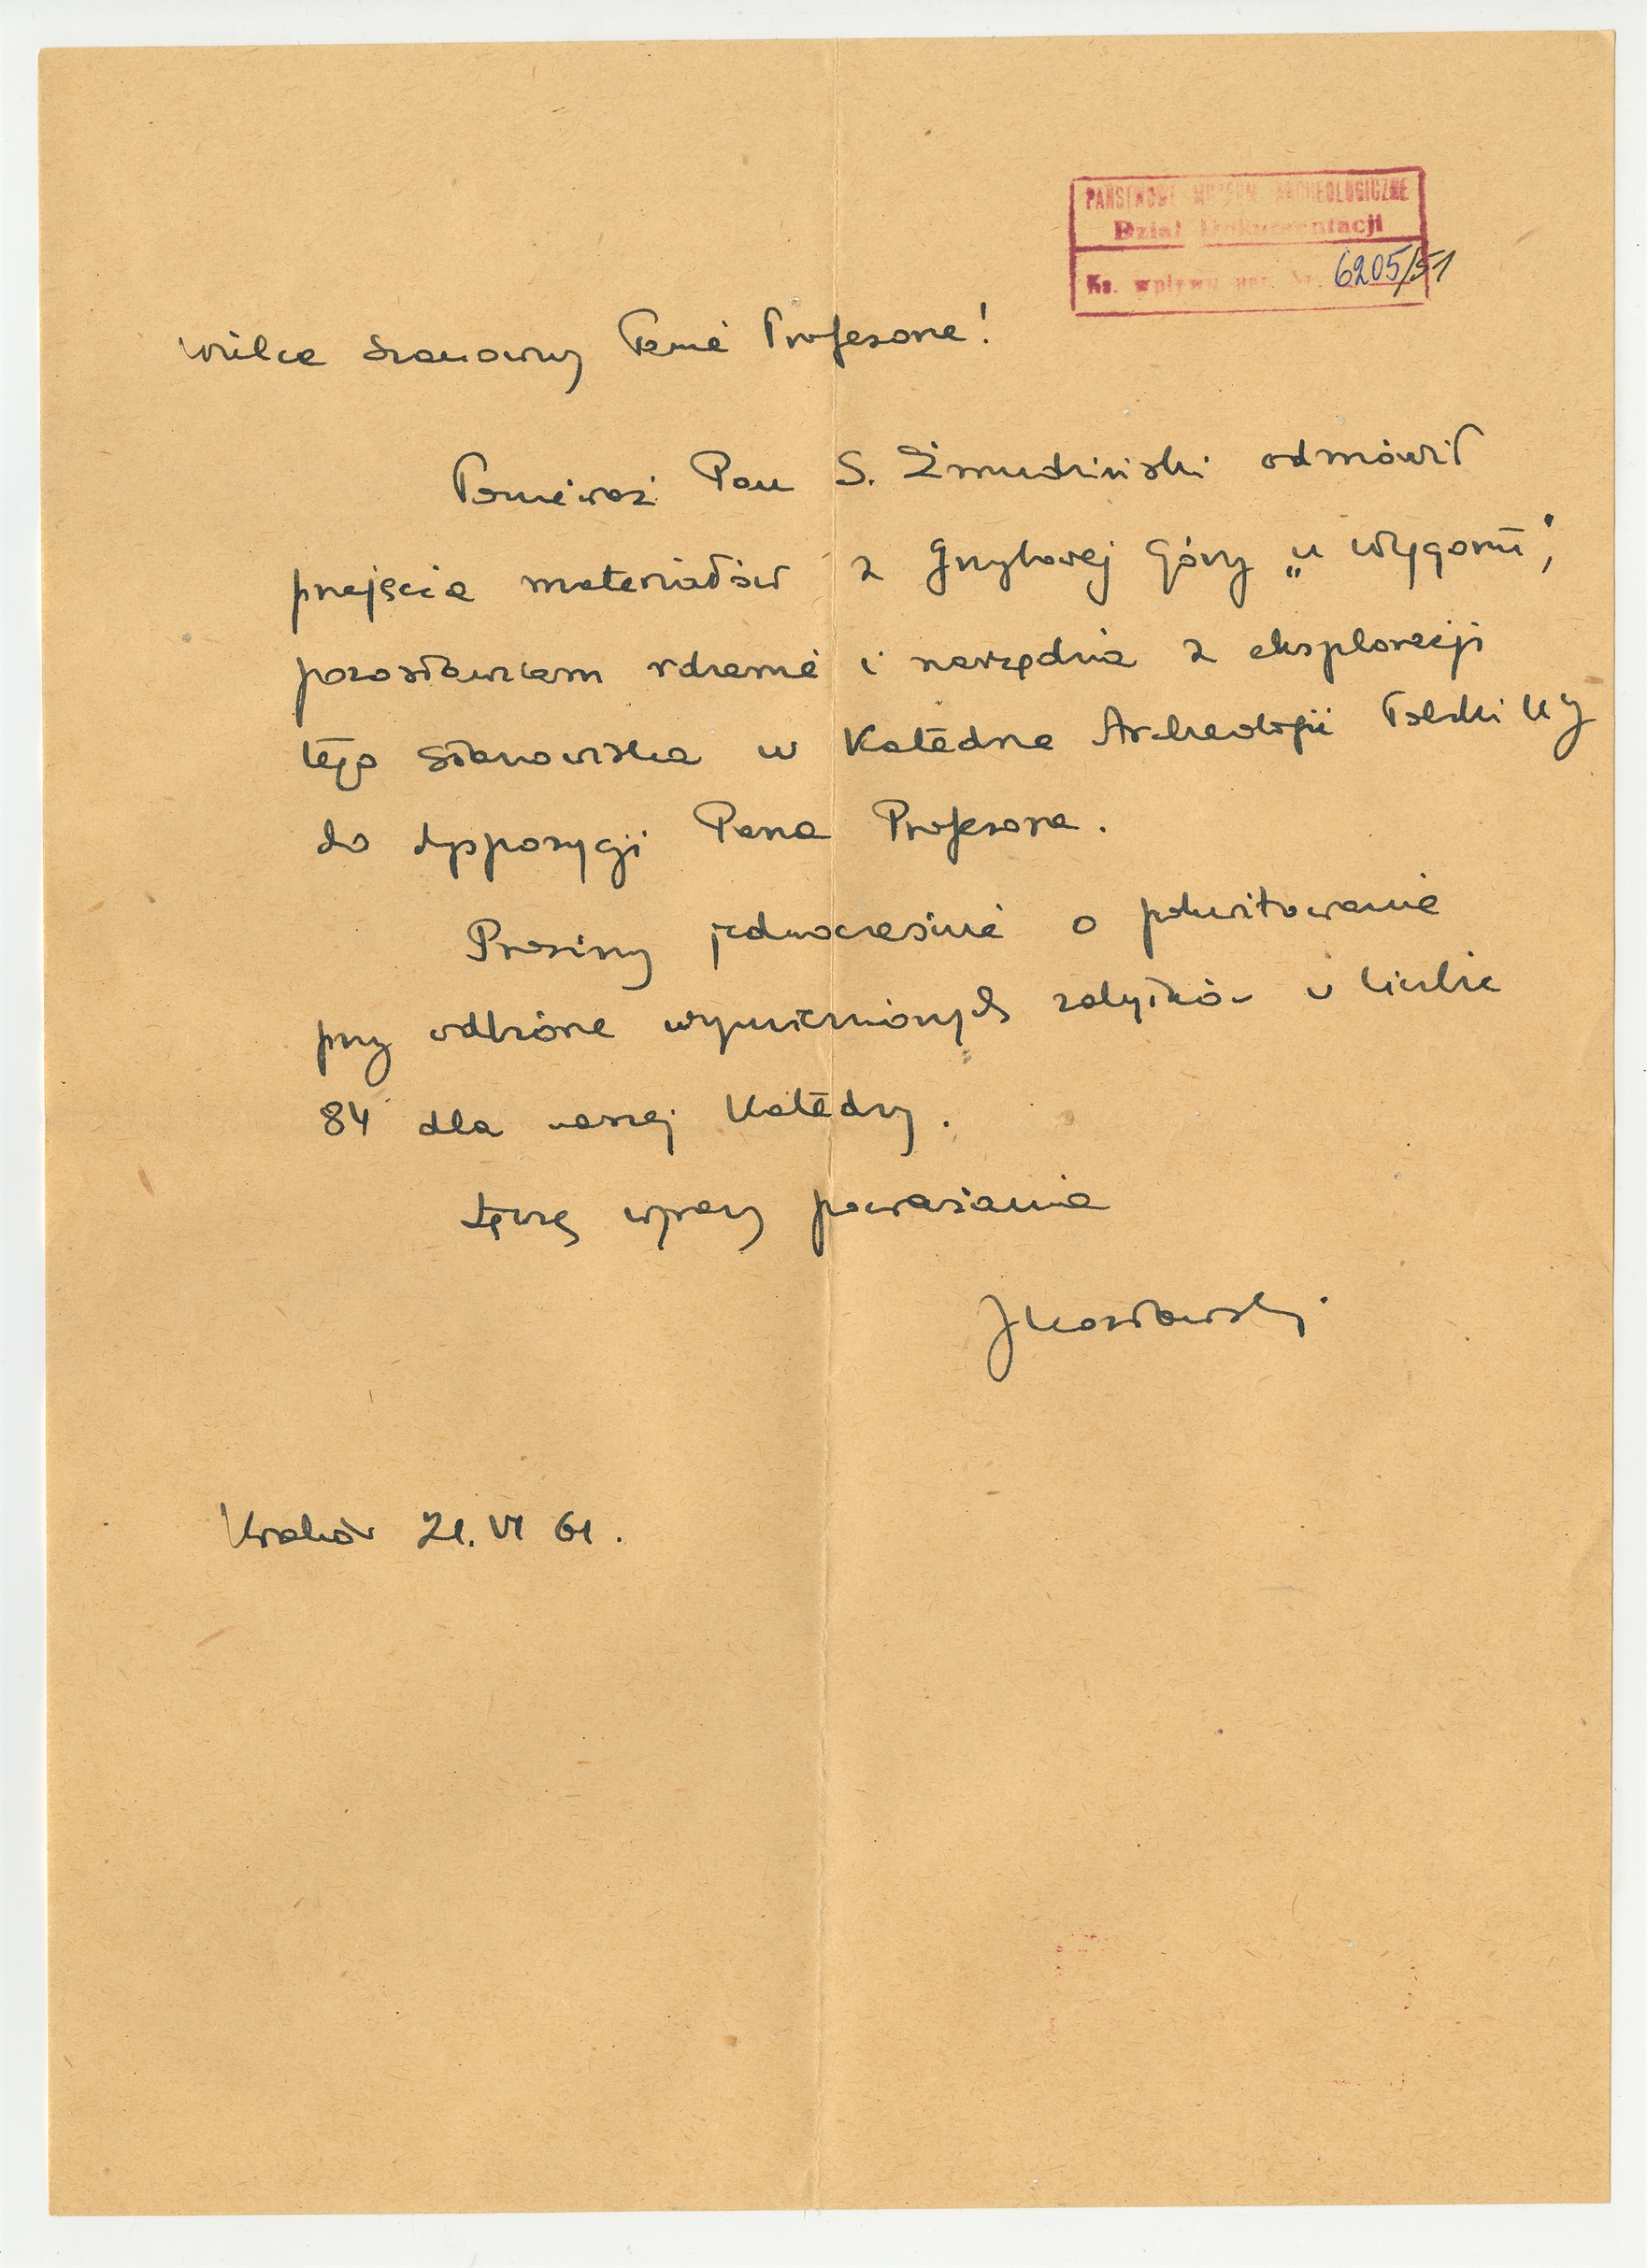 PAŃSTWOWE MUZEUM ARCHEOLOGICZNE
Dział Dokumentacji
Ks. wpływu Nr. 6205/51
Wielce Szanowny Panie Profesorze!
Ponieważ Pan S. Żmudziński odmówił
przejęcia materiałów z Grzybowej Góry „u Wygoni",
pozostawiam rdzenie i narzędzia z eksploracji
tego stanowiska w Katedrze Archeologii Polski UJ
do dyspozycji Pana Profesora.
Prosimy jednocześnie o pokwitowanie
przy odbiorze wymienionych zabytków w liczbie
84 dla naszej Katedry.
Łączę wyrazy poważania
JKozłowski
Kraków 21. VI 61.